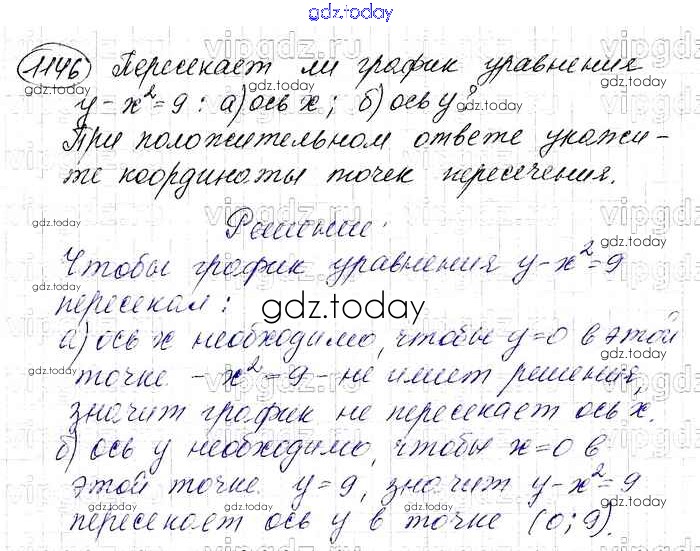 gdz.today
1146 Пересекает ли график уравнения
y-x²=9: а) ось x; б) ось y?
При положительном ответе укажи-
те координаты точек пересечения.
Решение:
Чтобы график уравнения y-x²=9
пересекал:
gdz.today
а) ось x необходимо, чтобы y=0 в этой
точке -x²=9 - не имеет решения,
значит график не пересекает ось x.
б) ось y необходимо, чтобы x=0 в
этой точке y=9, значит y-x²=9
пересекает ось y в точке (0; 9).